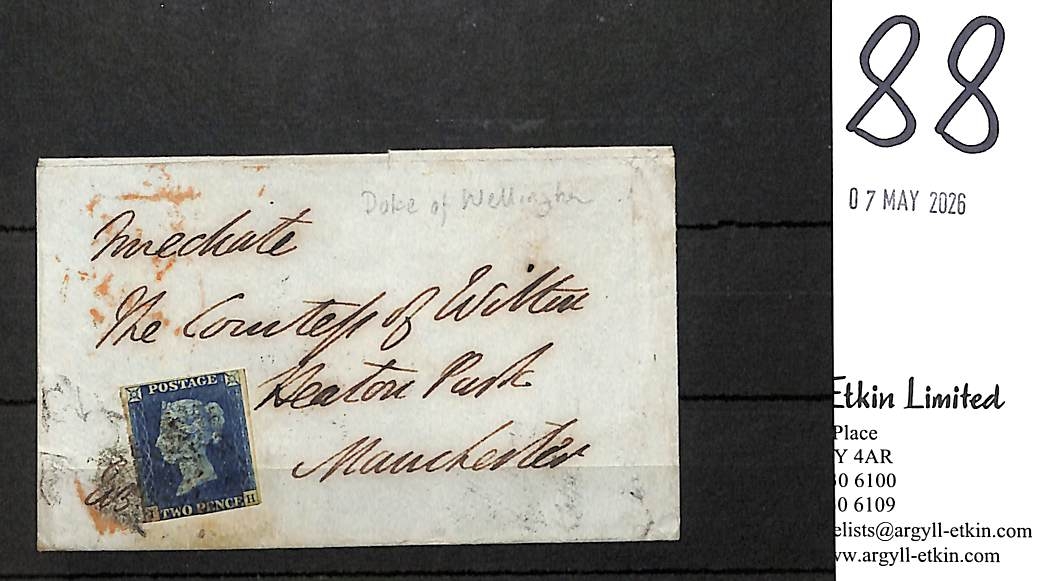 88
07 MAY 2026
Duke of Wellington
Imediate
The Countess of Wilton
Heaton Park
Manchester
POSTAGE
TWO PENCE
H
Etkin Limited
Place
Y 4AR
0 6100
0 6109
elists@argyll-etkin.com
w.argyll-etkin.com